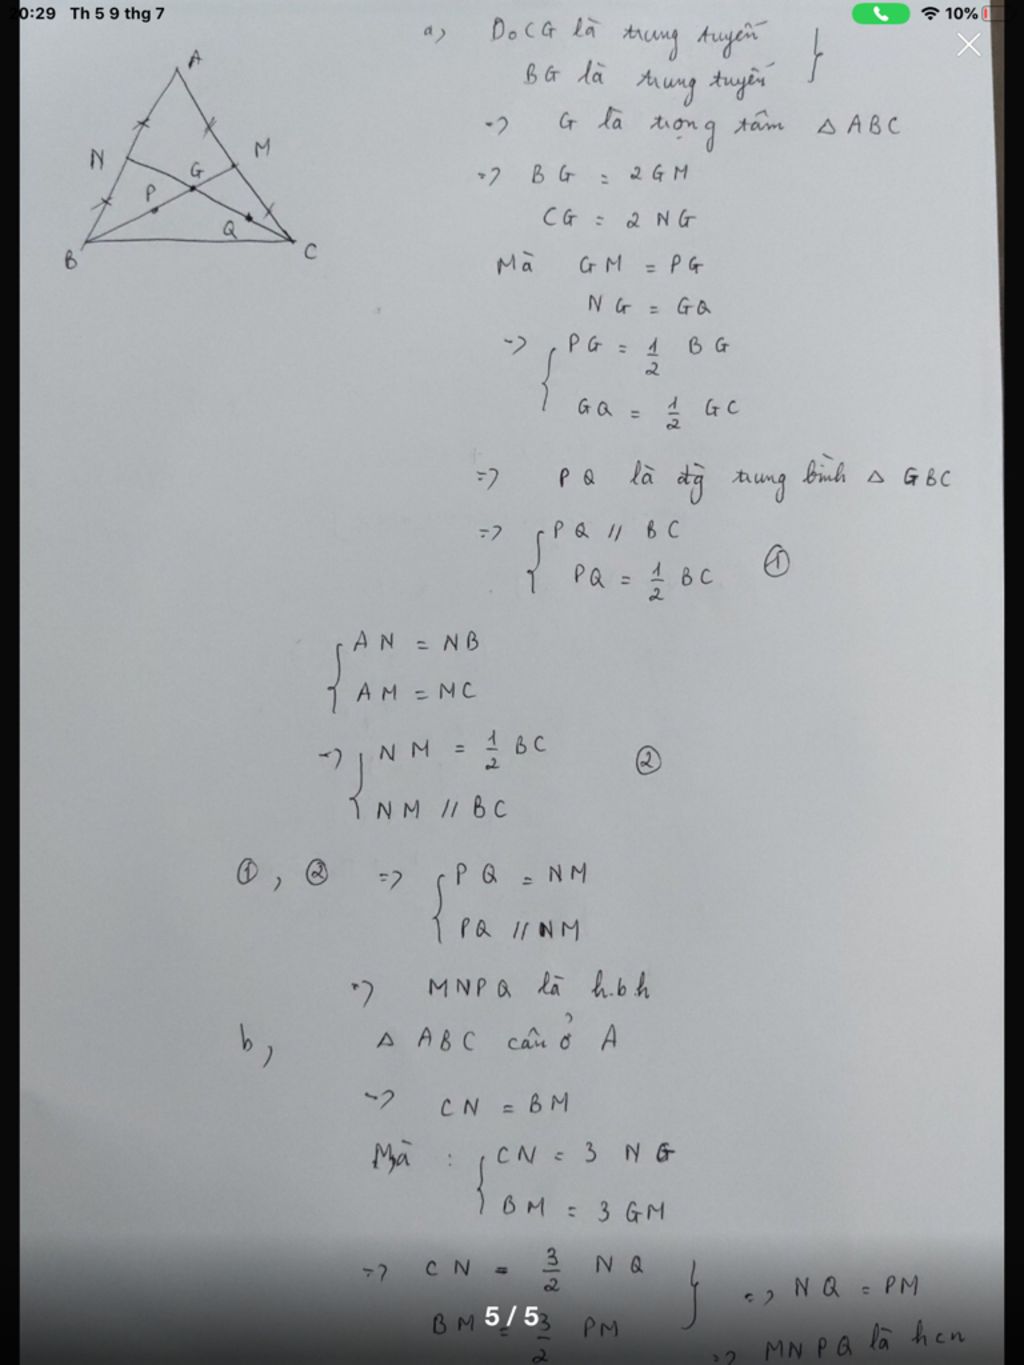 20:29 Th 5 9 thg 7
10%
a, Do CG là trung tuyến
BG là trung tuyến
=> G là trọng tâm Δ ABC
=> BG = 2 GM
CG = 2 NG
Mà GM = PG
NG = GQ
=> PG = 1/2 BG
GQ = 1/2 GC
=> PQ là đg trung bình Δ GBC
=> PQ // BC
PQ = 1/2 BC ①
AN = NB
AM = MC
=> NM = 1/2 BC ②
NM // BC
①, ② => PQ = NM
PQ // NM
=> MNPQ là h.b.h
b, Δ ABC cân ở A
=> CN = BM
Mà : CN = 3 NG
BM = 3 GM
=> CN = 3/2 NQ
BM = 3/2 PM
=> NQ = PM
=> MNPQ là hcn
5 / 5
A
N
M
G
P
Q
B
C